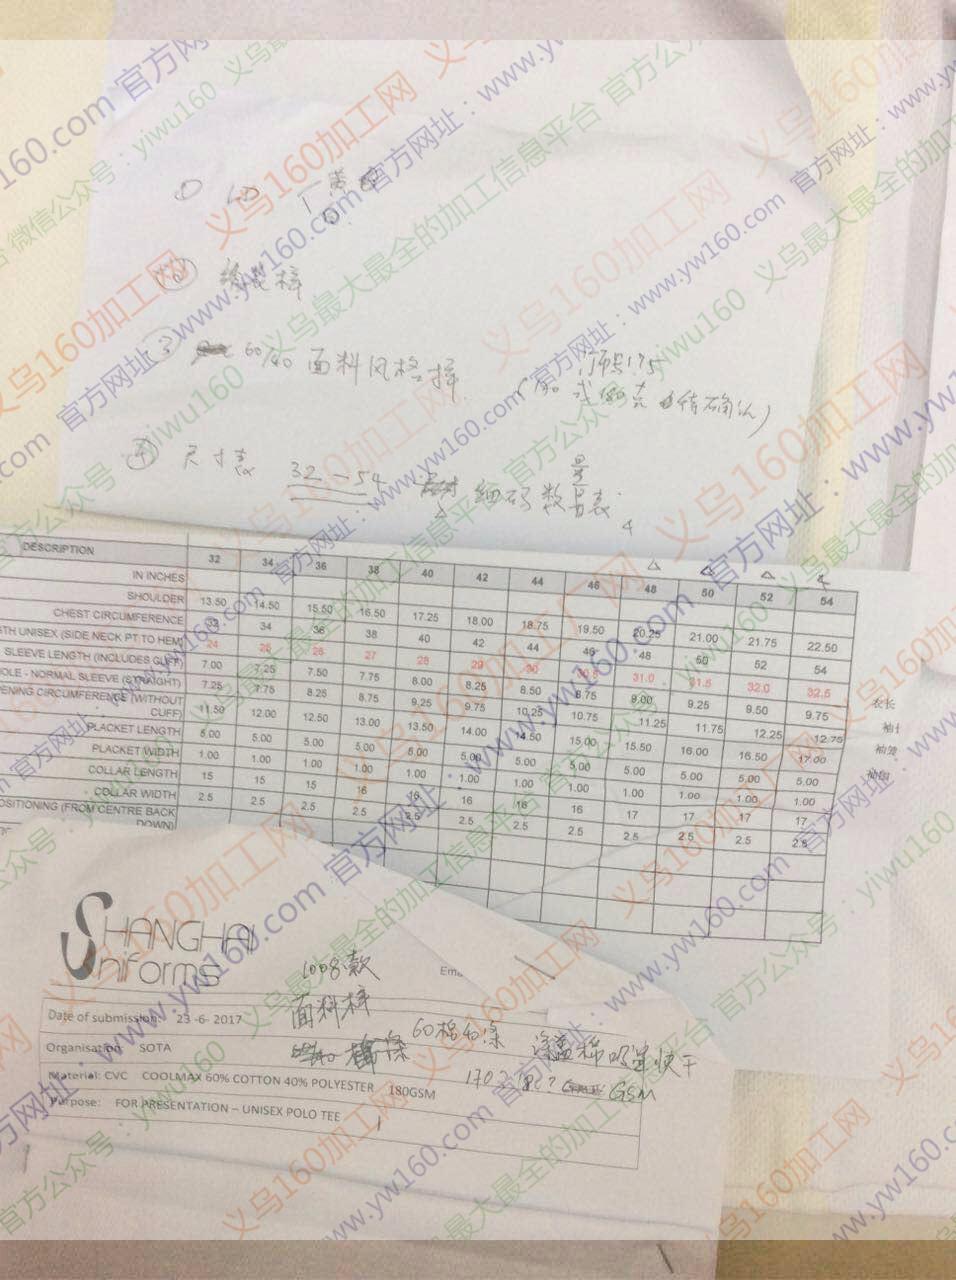 ① LD
样
③ 60/40 面料风格样 克重175
(180 或180克 待确认)
④ 尺寸表 32—54 细码数量表
DESCRIPTION 32 34 36 38 40 42 44 46 48 50 52 54
IN INCHES
SHOULDER 13.50 14.50 15.50 16.50 17.25 18.00 18.75 19.50 20.25 21.00 21.75 22.50
CHEST CIRCUMFERENCE 32 34 36 38 40 42 44 46 48 50 52 54
TH UNISEX (SIDE NECK PT TO HEM) 24 25 26 27 28 29 30 30.5 31.0 31.5 32.0 32.5 衣长
SLEEVE LENGTH (INCLUDES CUFF) 7.00 7.25 7.50 7.75 8.00 8.25 8.50 8.75 9.00 9.25 9.50 9.75
OLE - NORMAL SLEEVE (STRAIGHT) 7.25 7.75 8.25 8.75 9.25 9.75 10.25 10.75 11.25 11.75 12.25 12.75
PENING CIRCUMFERENCE (WITHOUT CUFF) 11.50 12.00 12.50 13.00 13.50 14.00 14.50 15.00 15.50 16.00 16.50 17.00
PLACKET LENGTH 5.00 5.00 5.00 5.00 5.00 5.00 5.00 5.00 5.00 5.00 5.00 5.00
PLACKET WIDTH 1.00 1.00 1.00 1.00 1.00 1.00 1.00 1.00 1.00 1.00 1.00 1.00
COLLAR LENGTH 15 15 15 16 16 16 16 16 17 17 17 17
COLLAR WIDTH 2.5 2.5 2.5 2.5 2.5 2.5 2.5 2.5 2.5 2.5 2.5 2.5
OSITIONING (FROM CENTRE BACK DOWN)
SHANGHAI
Uniforms
1008款
Ema
Date of submission: 23 -6- 2017 面料样
Organisation: SOTA 60棉40涤 涤盖棉吸湿快干
Material: CVC COOLMAX 60% COTTON 40% POLYESTER 180GSM GSM
Purpose: FOR PRESENTATION – UNISEX POLO TEE
义乌160加工网 官方网址：www.yw160.com
义乌最大最全的加工信息平台 官方公众号：yiwu160